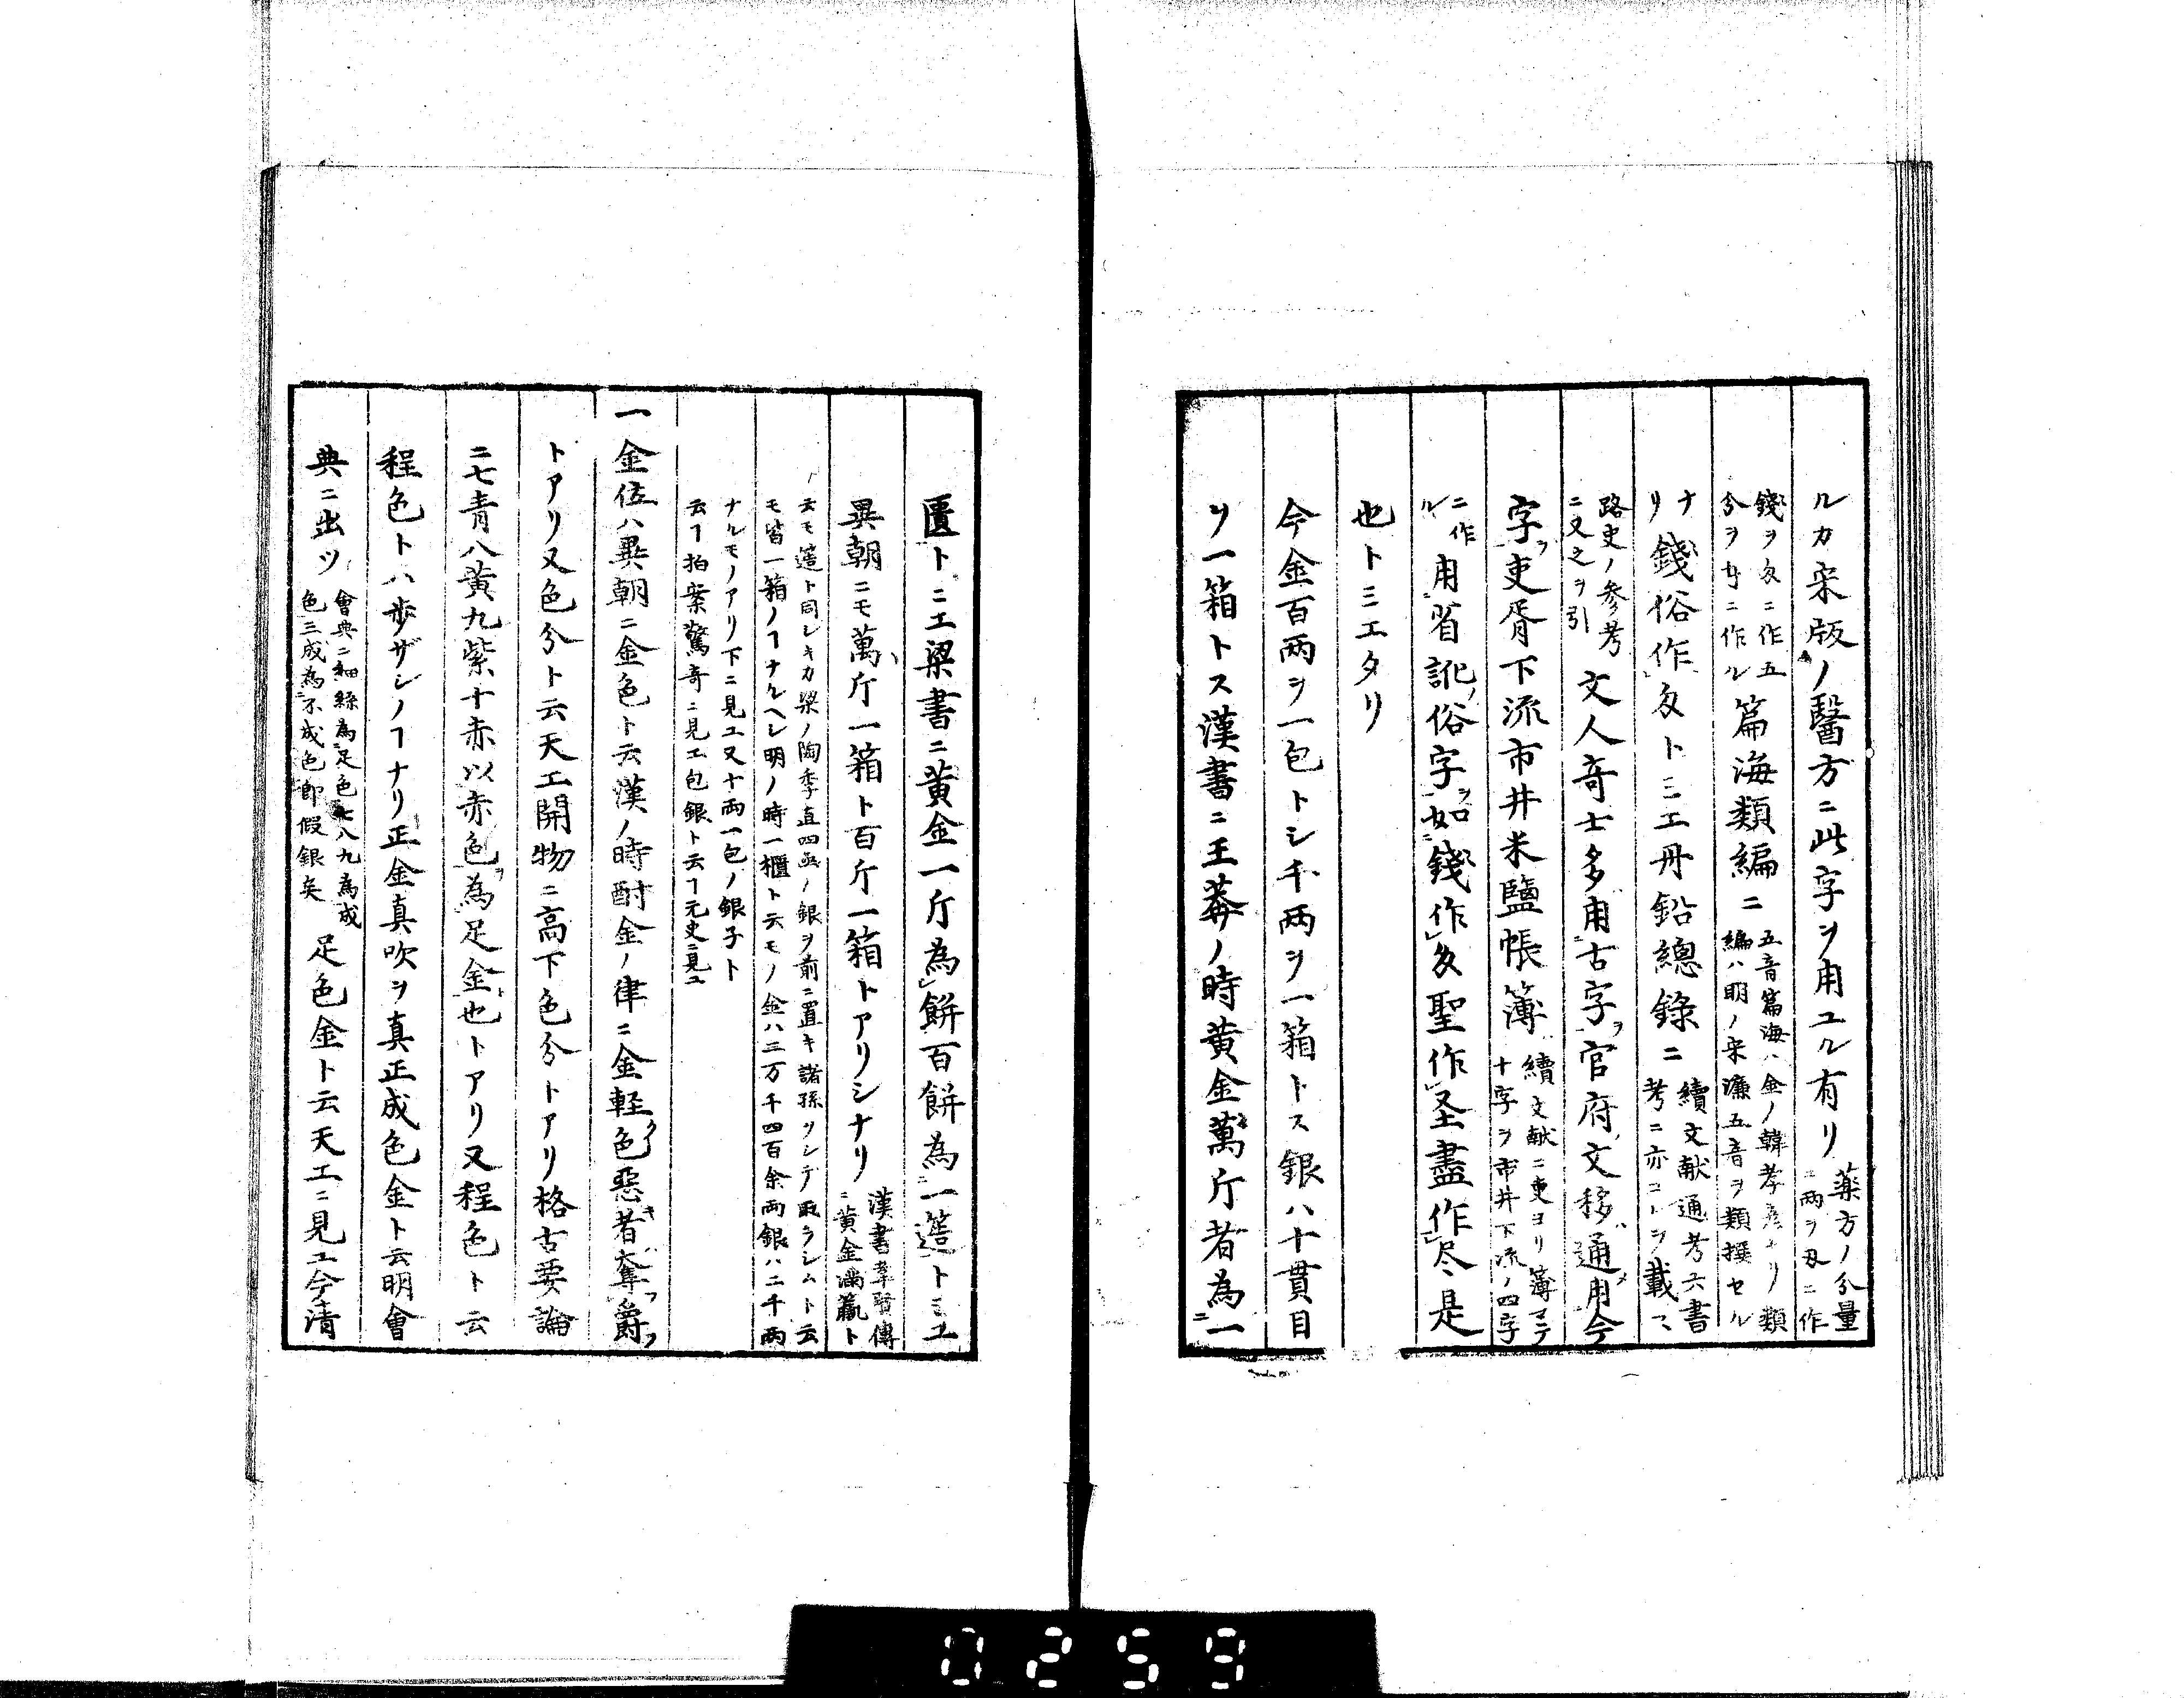 ルカ宋版ノ醫方ニ此字ヲ用ユル有リ
薬方ノ分量
ニ両ヲ刄ニ作
錢ヲ夊ニ作五
分ヲ卄ニ作ル
篇海類編ニ
五音篇海ハ金ノ韓孝彦ナリ類
編ハ明ノ宋濂五音ヲ類撰セル
ナ
リ
錢俗作夊トミエ丹鉛總錄ニ
續文献通考六書
考ニ亦コトヲ載ス
路史ノ参考
ニ又之ヲ引
文人奇士多用古字官府文移通用今
字吏胥下流市井米鹽帳簿
續文献ニ吏ヨリ簿マテ
十字ヲ市井下流ノ四字
ニ作
ル
用省訛俗字如錢作夊聖作圣盡作尽是
也トミエタリ
今金百両ヲ一包トシ千両ヲ一箱トス銀ハ十貫目
ヲ一箱トス漢書ニ王莽ノ時黄金萬斤者為一
匱トミエ梁書ニ黄金一斤為餅百餅為一簉トミユ
異朝ニモ萬斤一箱ト百斤一箱トアリシナリ
漢書韋賢傳
ニ黄金滿籯ト
云モ簉ト同シキカ梁ノ陶季直四函ノ銀ヲ前ニ置キ諸孫ヲシテ取ラシムト云
モ皆一箱ノヿナルヘシ明ノ時一櫃ト云モノ金ハ三万千四百余両銀ハ二千両
ナルモノアリ下ニ見エ又十両一包ノ銀子ト
云ヿ拍案驚奇ニ見エ包銀ト云ヿ元史ニ見ユ
一金位ハ異朝ニ金色ト云漢ノ時酎金ノ律ニ金軽色惡者奪爵
トアリ又色分ト云天工開物ニ高下色分トアリ格古要論
ニ七青八黄九紫十赤以赤色為足金也トアリ又程色ト云
程色トハ歩ザシノヿナリ正金真吹ヲ真正成色金ト云明會
典ニ出ツ
會典ニ細絲為足色七八九為成
色三成為不成色即假銀矣
足色金ト云天工ニ見エ今清
0259